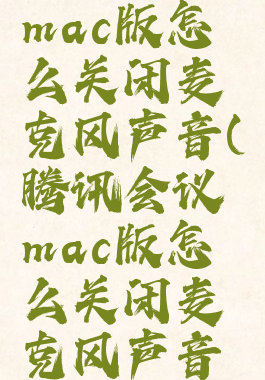 mac版怎
么关闭麦
克风声音(
腾讯会议
mac版怎
么关闭麦
克风声音